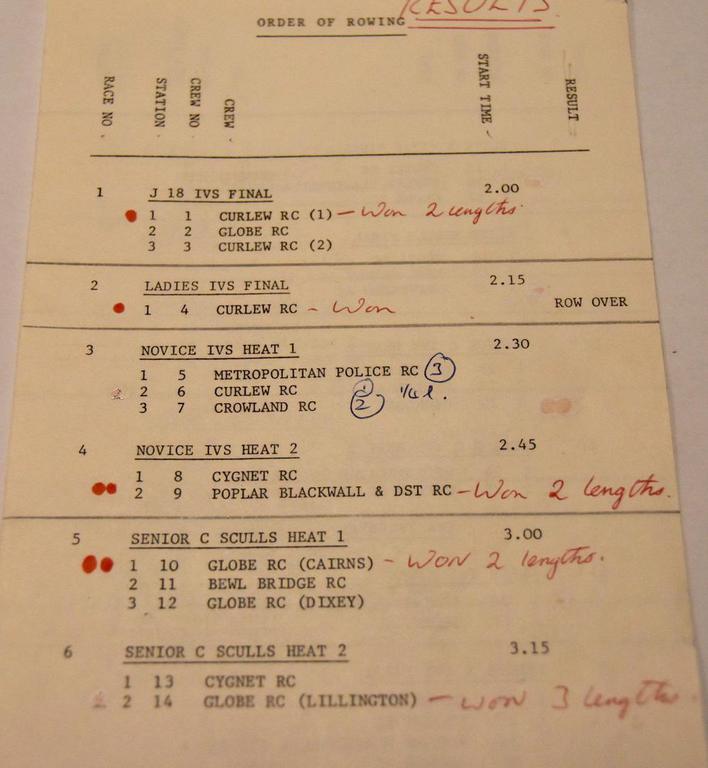 RESULTS
ORDER OF ROWING
RACE NO STATION CREW NO CREW START TIME RESULT
1 J 18 IVS FINAL 2.00
1 1 CURLEW RC (1) - Won 2 lengths
2 2 GLOBE RC
3 3 CURLEW RC (2)
2 LADIES IVS FINAL 2.15
1 4 CURLEW RC - Won ROW OVER
3 NOVICE IVS HEAT 1 2.30
1 5 METROPOLITAN POLICE RC 3
2 6 CURLEW RC 1
3 7 CROWLAND RC 2
4 NOVICE IVS HEAT 2 2.45
1 8 CYGNET RC
2 9 POPLAR BLACKWALL & DST RC - Won 2 lengths.
5 SENIOR C SCULLS HEAT 1 3.00
1 10 GLOBE RC (CAIRNS) - WON 2 lengths.
2 11 BEWL BRIDGE RC
3 12 GLOBE RC (DIXEY)
6 SENIOR C SCULLS HEAT 2 3.15
1 13 CYGNET RC
2 14 GLOBE RC (LILLINGTON) - won 3 lengths